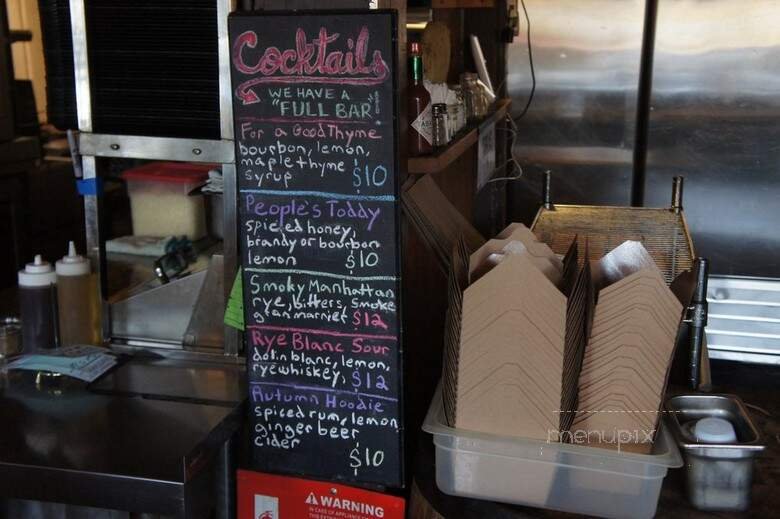 Cocktails
WE HAVE A
"FULL BAR"!
For a Good Thyme
bourbon, lemon,
maple thyme
syrup $10
People's Toddy
spiced honey,
brandy or bourbon
lemon $10
Smoky Manhattan
rye, bitters, smoke
gran marnier $12
Rye Blanc Sour
dolin blanc, lemon,
rye whiskey, $12
Autumn Hoodie
spiced rum, lemon
ginger beer
cider
$10
WARNING
IN CASE OF APPLIANCE FIRE
menupix